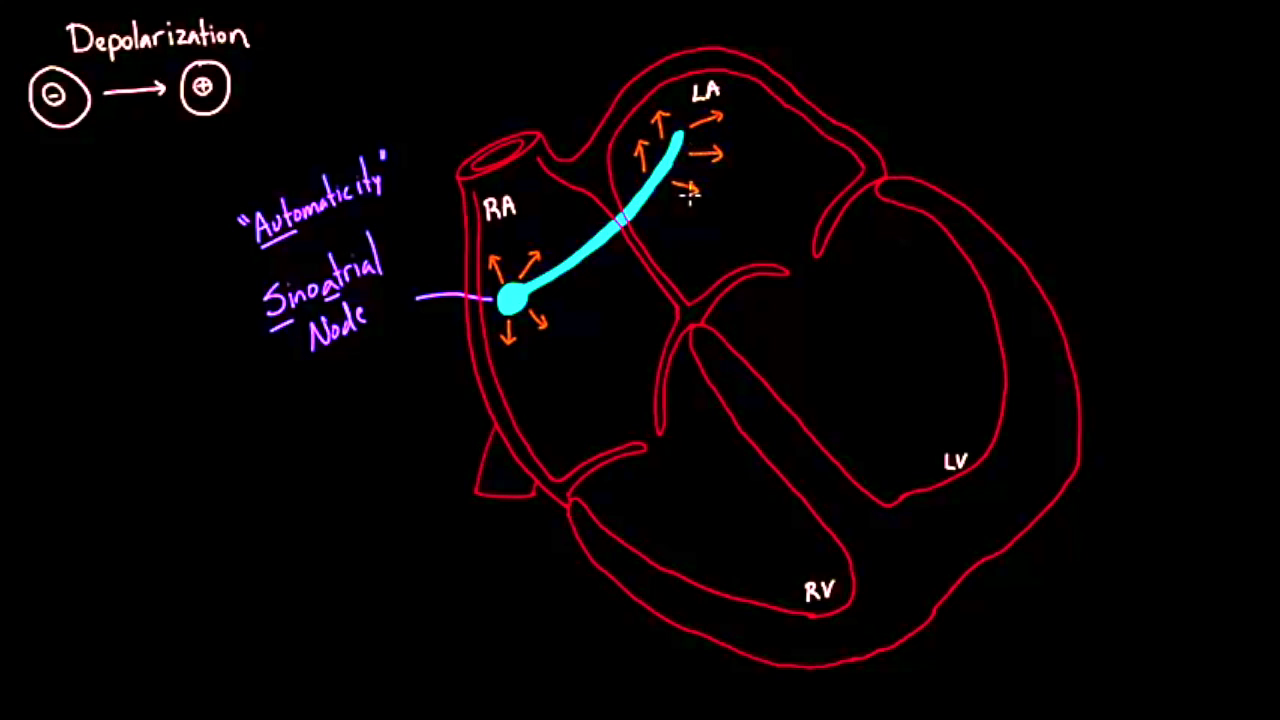 Depolarization
- → +
"Automaticity"
Sinoatrial
Node
RA
LA
LV
RV